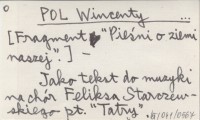 POL Wincenty ...
[Fragment "Pieśni o ziemi
naszej".] —
Jako tekst do muzyki
na chór Feliksa Starczew-
skiego pt. "Tatry".